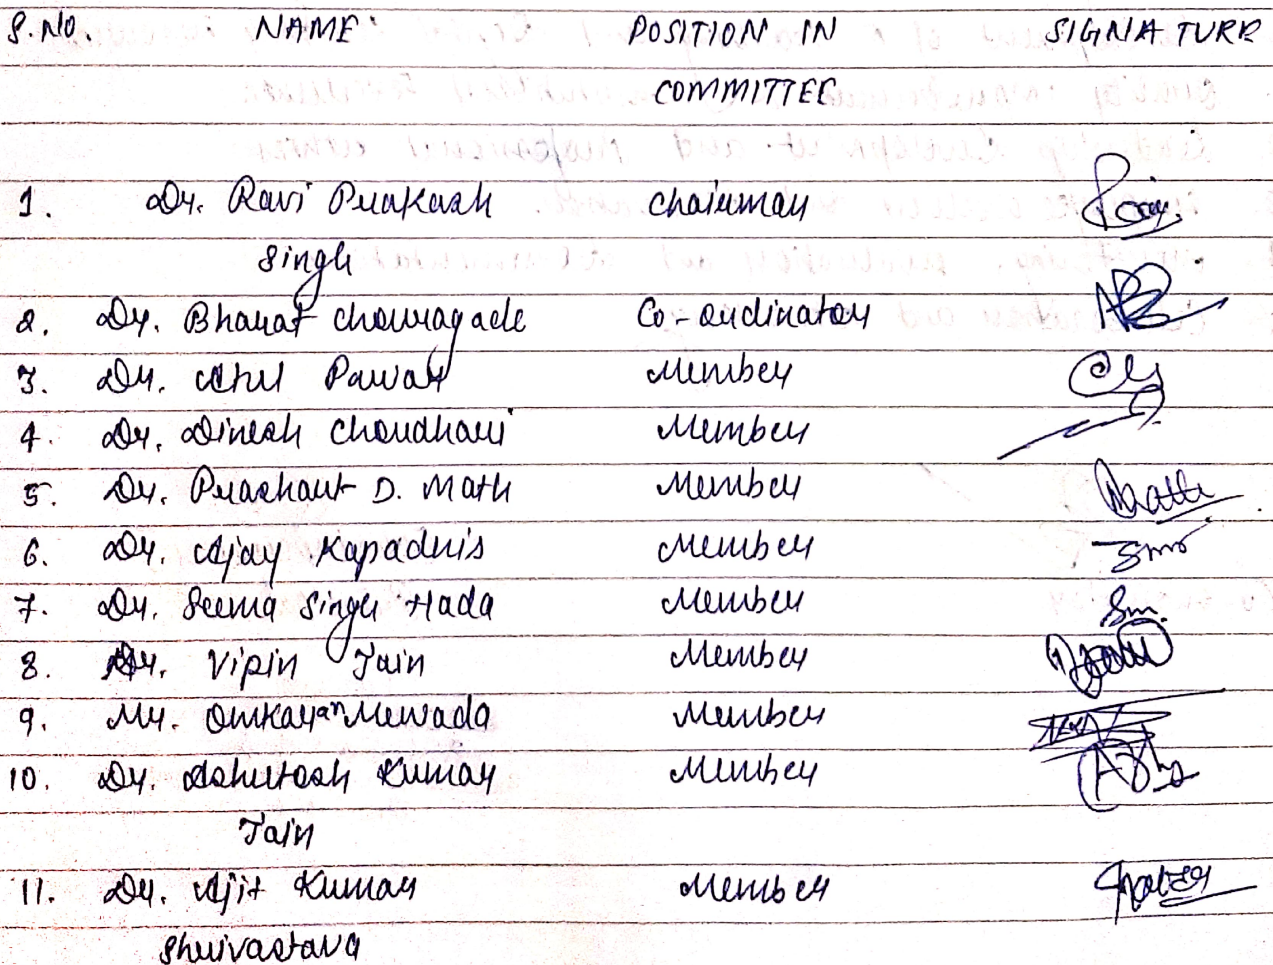 S.NO. NAME POSITION IN SIGNATURE
COMMITTEE
1. Dr. Ravi Prakash Chairman
Singh
2. Dr. Bharat Chouragade Co-ordinator
3. Dr. Atul Pawar Member
4. Dr. Dinesh Choudhari Member
5. Dr. Prashant D. Math Member
6. Dr. Ajay Kapadnis Member
7. Dr. Seema Singh Hada Member
8. Vipin Jain Member
9. Mr. Omkar Mewada Member
10. Dr. Ashutosh Kumar Member
Jain
11. Dr. Ajit Kumar Member
Shrivastava